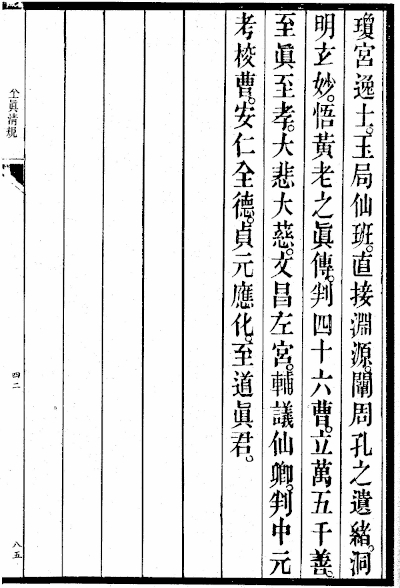 瓊宮逸士。玉局仙班。直接淵源。闡周孔之遺緒。洞
明玄妙。悟黃老之眞傳。判四十六曹。立萬五千善。
至眞至孝。大悲大慈。文昌左宮。輔議仙卿。判中元
考校曹。安仁全德。貞元應化。至道眞君。
全眞清規
四二
八五